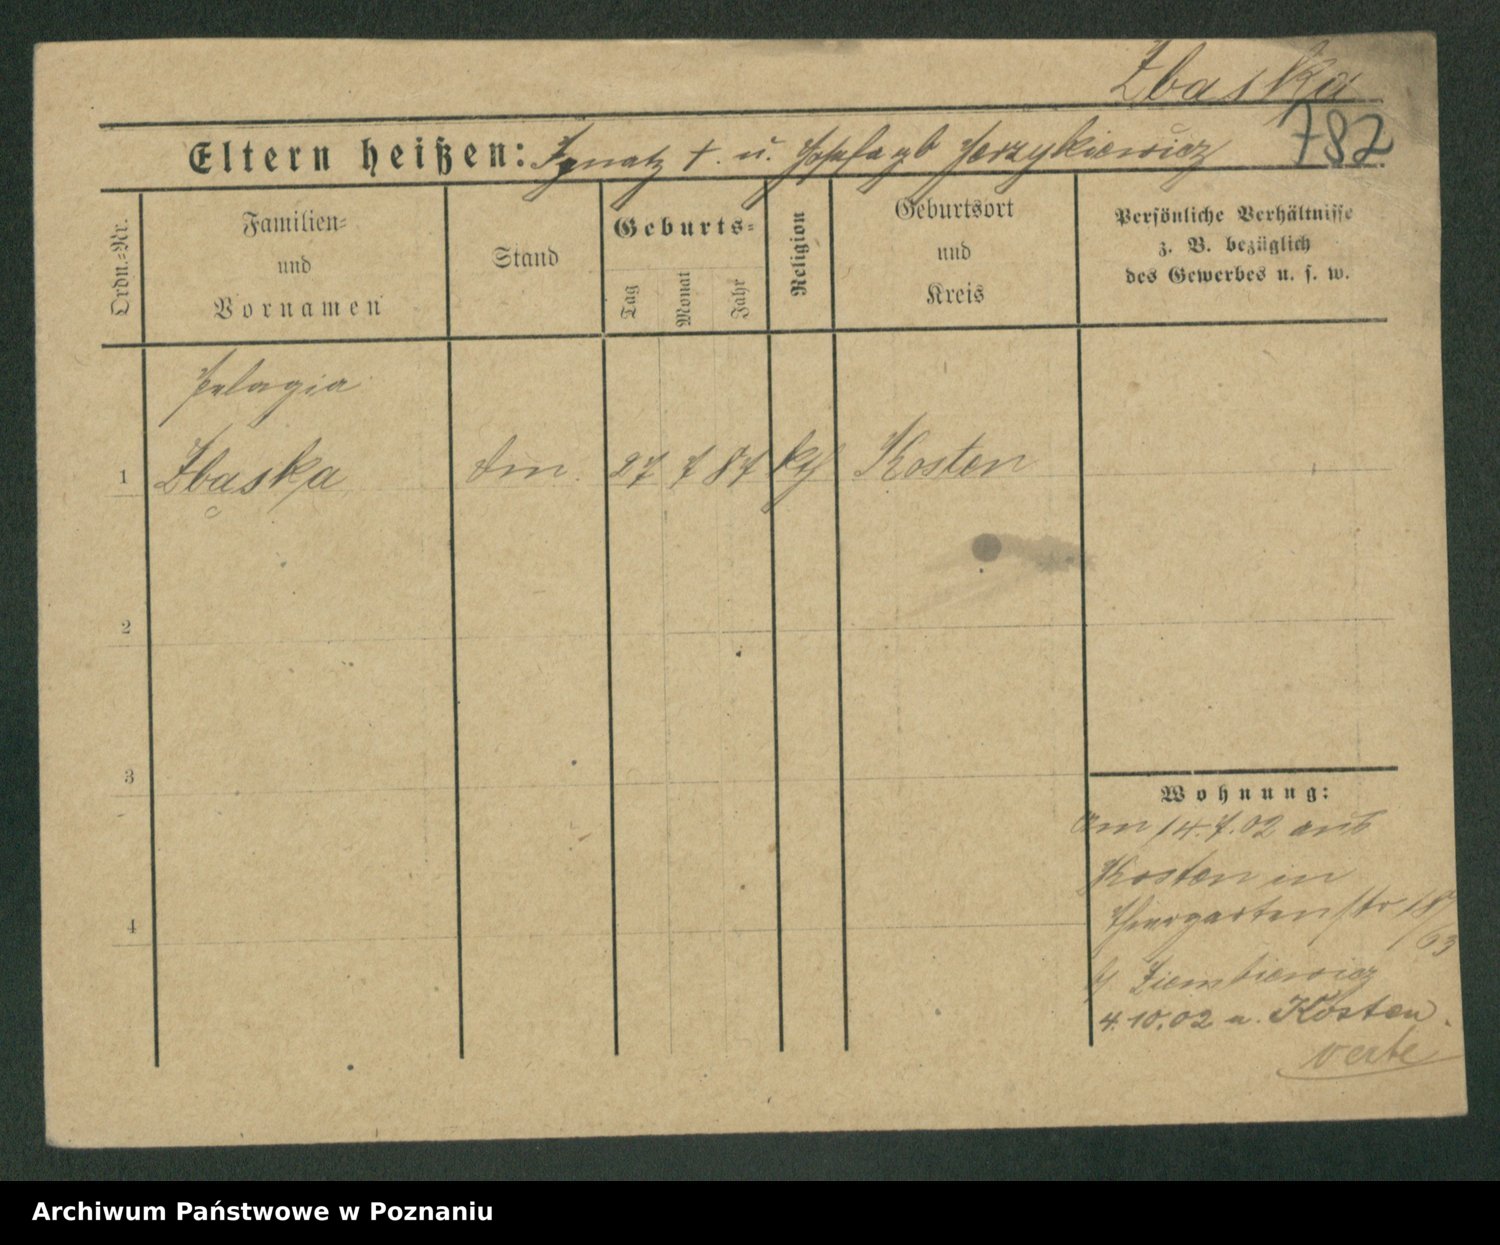 Zbaska
782
Eltern heißen: Ignatz †. u. Josefa gb Jerzykiewicz
Ordn.=Nr.
Familien=
und
Vornamen
Stand
Geburts=
Tag
Monat
Jahr
Religion
Geburtsort
und
Kreis
Persönliche Verhältnisse
z. B. bezüglich
des Gewerbes u. s. w.
Pelagia
1 Zbaska 27 7 87 kth Kosten
2
3
4
Wohnung:
Am 14.7.02 aus
Kosten in
Thiergartenstr 18/
63
b/ Ziemkiewicz
4.10.02 n. Kosten.
verte
Archiwum Państwowe w Poznaniu